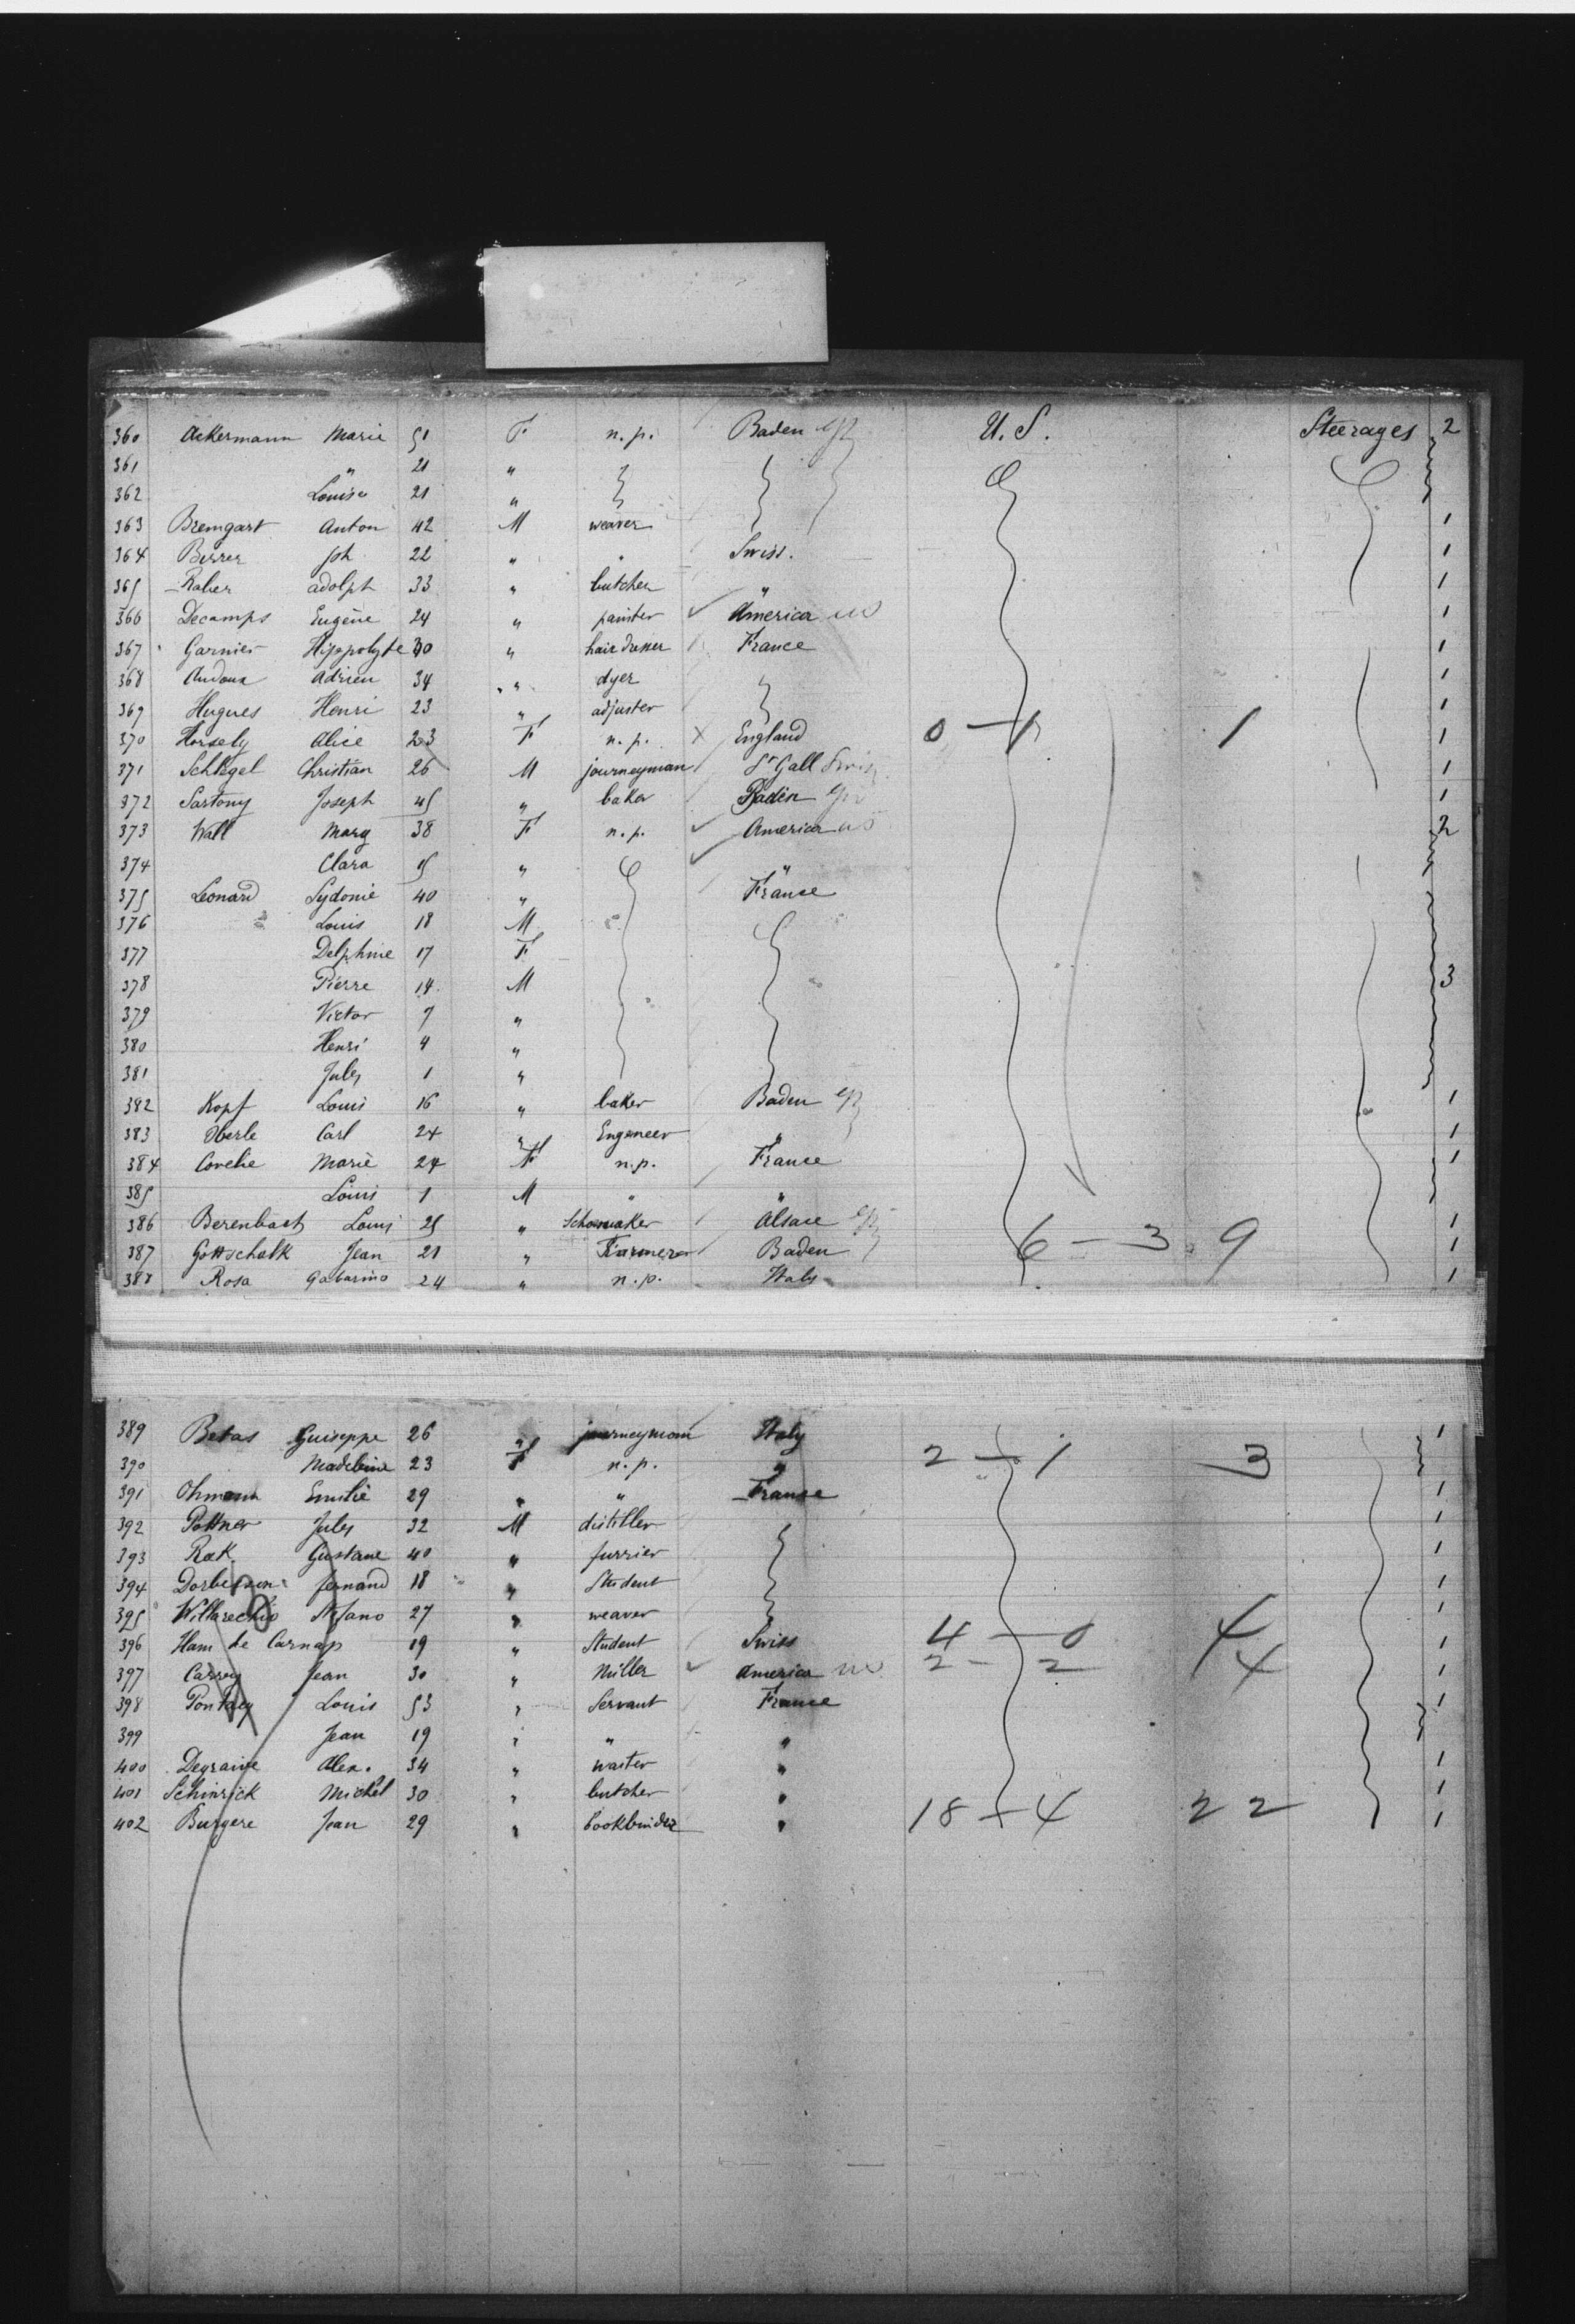 360 Ackermann Marie 51 F n.p. Baden U.S. Steerages 2
361 " 21 "
362 Louise 21 "
363 Bremgart Anton 42 M weaver 1
364 Birrer Joh 22 " " Swiss. 1
365 Raber adolph 33 " butcher " 1
366 Decamps Eugène 24 " painter ✓ America US 1
367 Garnier Hippolyte 30 " hairdresser France 1
368 Audoux Adrien 34 " dyer 1
369 Hugues Henri 23 " adjuster 1
370 Horsely Alice 23 F n.p. X England 0 — 1 1 1
371 Schlegel Christian 26 M journeyman St Gall Swiss 1
372 Sartony Joseph 45 " baker Baden 1
373 Wall Mary 38 F n.p. ✓ America US 2
374 Clara 15 " ✓ "
375 Leonard Sydonie 40 " France
376 Louis 18 M
377 Delphine 17 F
378 Pierre 14 M 3
379 Victor 7 "
380 Henri 4 "
381 Jules 1 "
382 Kopf Louis 16 " baker Baden 1
383 Oberle Carl 24 " Engeneer " 1
384 Marie 24 F n.p. France 1
385 Louis 1 M " "
386 Louis 25 " Schomaker Alsace 1
387 Gottschalk Jean 21 " Farmer Baden 6 — 3 9 1
388 Rosa Gabarino 24 " n.p. Italy 1
389 Betas Guiseppe 26 " journeyman Italy 1
390 Madeleine 23 F n.p. " 2 — 1 3
391 Ohmann Emilie 29 " " France 1
392 Pottner Jules 32 M distiller 1
393 Gustave 40 " furrier 1
394 fernand 18 " Student 1
395 Stefano 27 " weaver 1
396 Ham de Carnap 19 " Student Swiss 4 — 0 4 1
397 Jean 30 " Miller ✓ America US 2 — 2 4 1
398 Louis 53 " Servant France 1
399 Jean 19 " " "
400 Alex. 34 " waiter " 1
401 Schinrick Michel 30 " butcher " 1
402 Burgere Jean 29 " bookbinder " 18 — 4 22 1